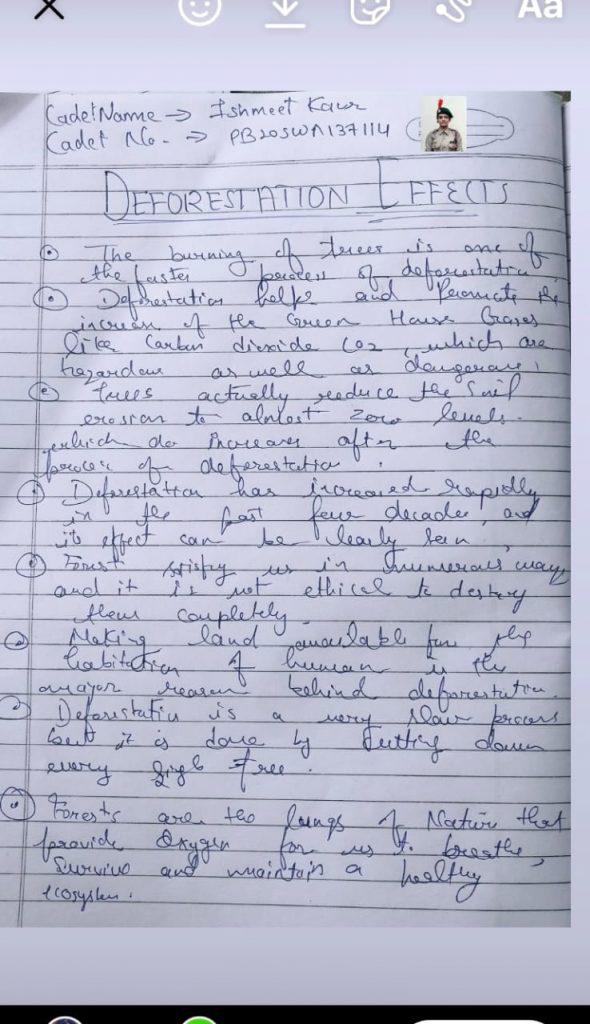 Aa
Cadet Name → Ishmeet Kaur
Cadet No. → PB20SWA137114
DEFORESTATION EFFECTS
The burning of trees is one of
the faster process of deforestation
Deforestation helps and Promote the
increase of the Green House Gases
like Carbon dioxide CO2, which are
hazardous as well as dangerous,
Trees actually reduce the Soil
erosion to almost zero levels.
which do increases after the
process of deforestation.
Deforestation has increased rapidly
in the past few decades, and
its effect can be clearly seen,
Forest us in numerous ways
and it is not ethical to destroy
them completely.
Making land available for the
habitation of human is the
major reason behind deforestation.
Deforestation is a very slow process
but it is done by cutting down
every Tree.
Forests are the lungs of Nature that
provide Oxygen for us to breathe,
Survive and maintain a healthy
ecosystem.